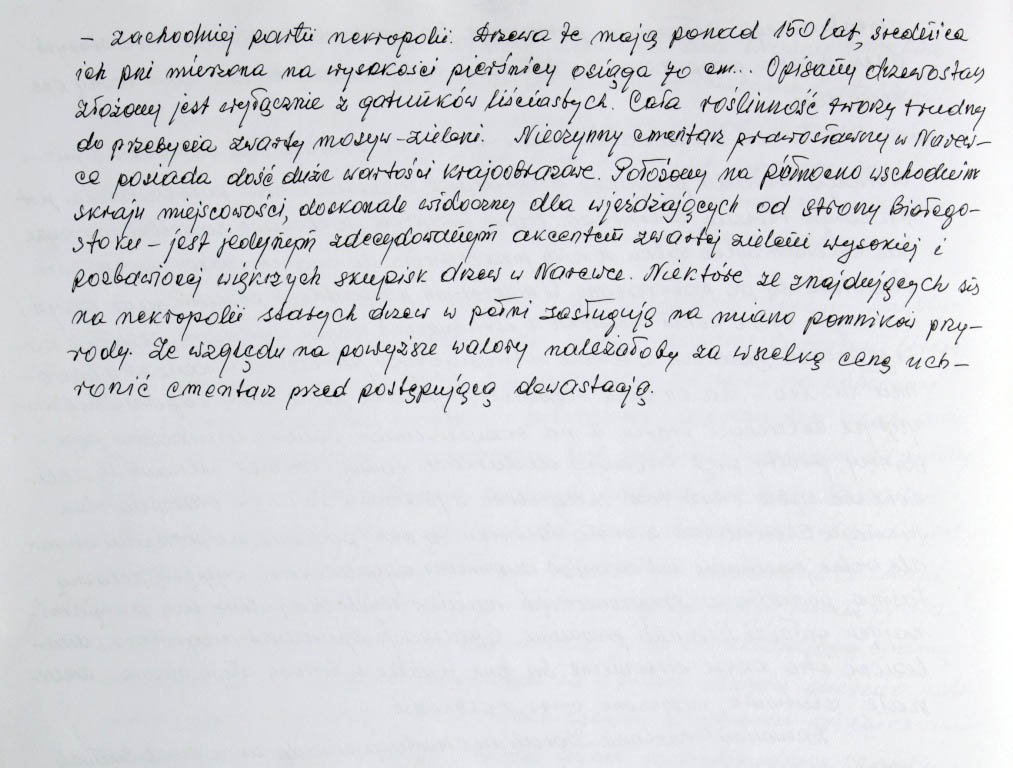 - zachodniej partii nekropolii. Drzewa te mają ponad 150 lat, średnica
ich pni mierzona na wysokości pierśnicy osiąga 70 cm... Opisany drzewostan
złożony jest wyłącznie z gatunków liściastych. Cała roślinność tworzy trudny
do przebycia zwarty masyw-zieleni. Nieczynny cmentarz prawosławny w Narew-
ce posiada dość duże wartości krajobrazowe. Położony na północno wschodnim
skraju miejscowości, doskonale widoczny dla wjeżdżających od strony Białego-
stoku - jest jedynym zdecydowanym akcentem zwartej zieleni wysokiej i
pozbawionej większych skupisk drzew w Narewce. Niektóre ze znajdujących się
na nekropolii starych drzew w pełni zasługują na miano pomników przy-
rody. Ze względu na powyższe walory należałoby za wszelką cenę uch-
ronić cmentarz przed postępującą dewastacją.